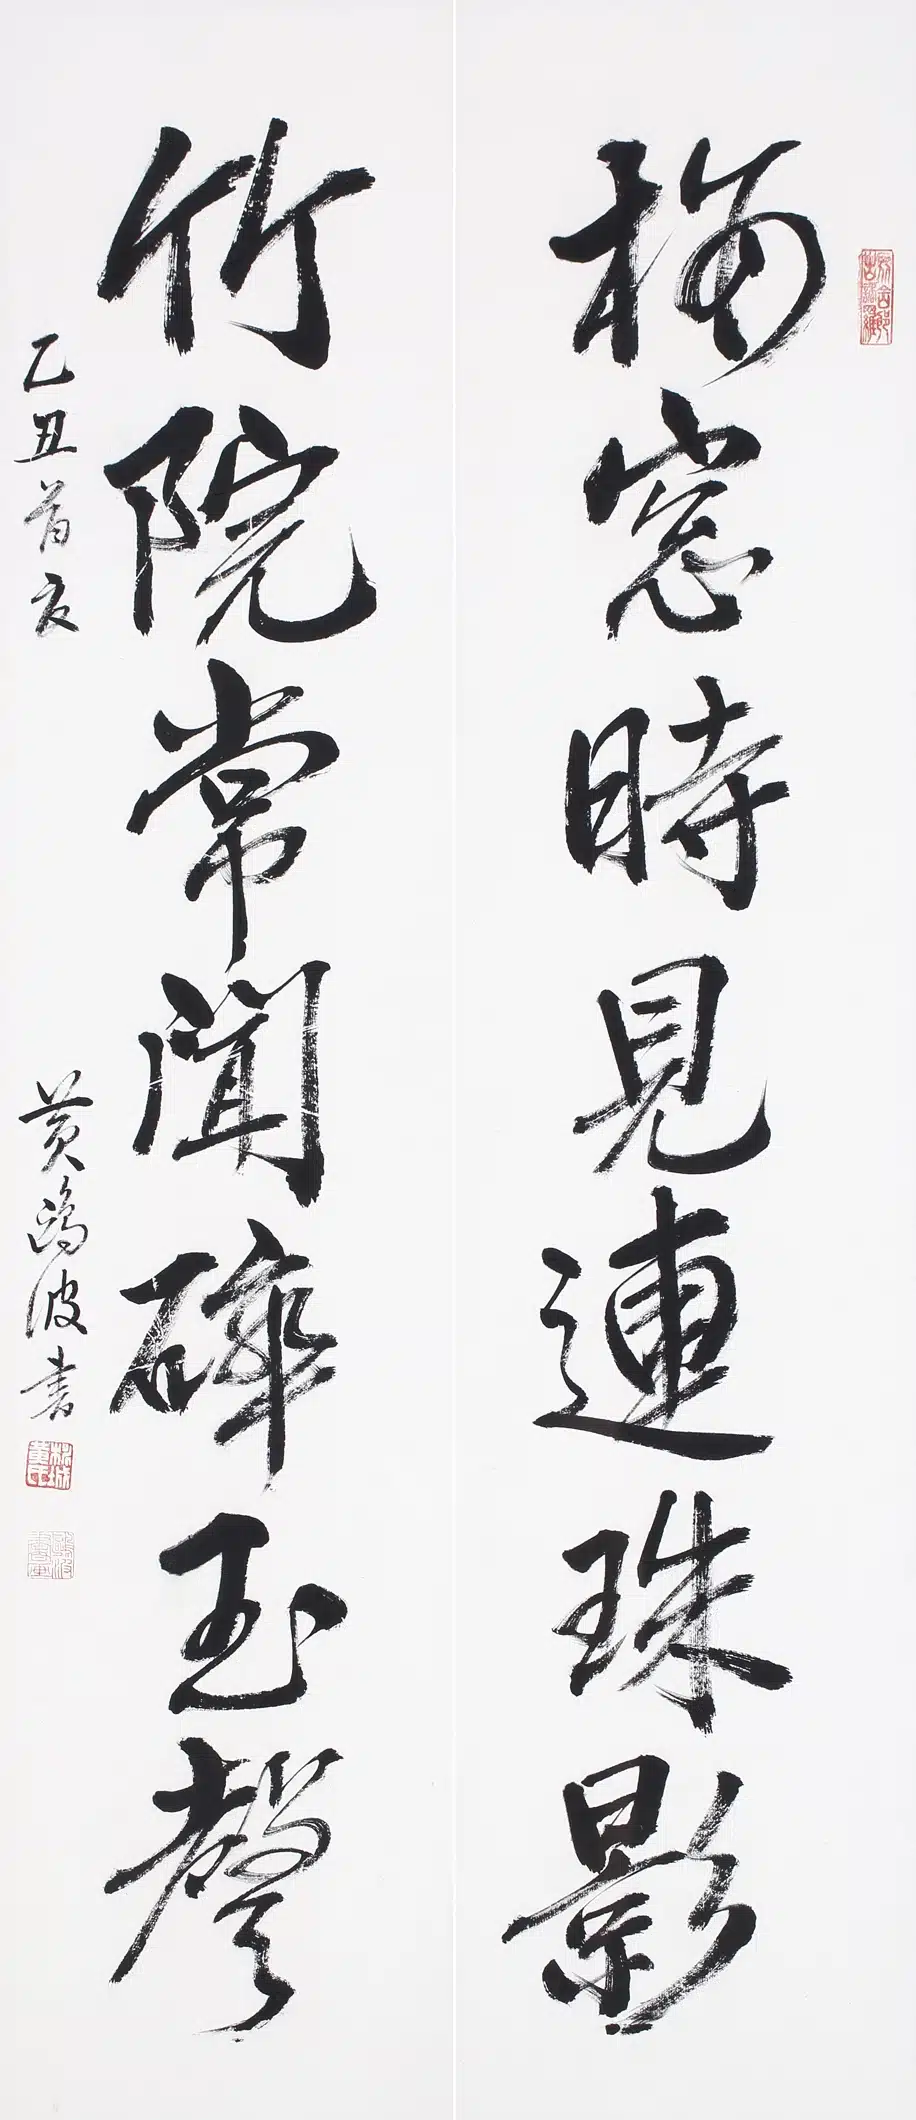 梅窓時見連珠影
竹院常聞碎玉聲
乙丑首夏
黃鷗波書